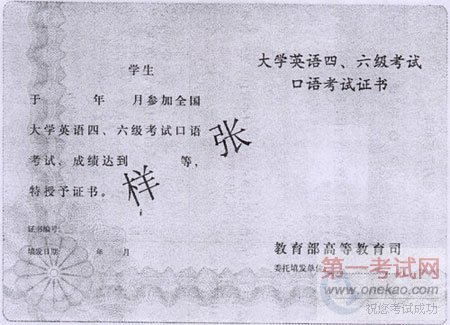 学生
于 年 月参加全国
大学英语四、六级考试口语
考试，成绩达到 等，
特授予证书。
证书编号：
填发日期： 年 月
大学英语四、六级考试
口语考试证书
样张
教育部高等教育司
委托填发单位
第一考试网
www.onekao.com
祝您考试成功